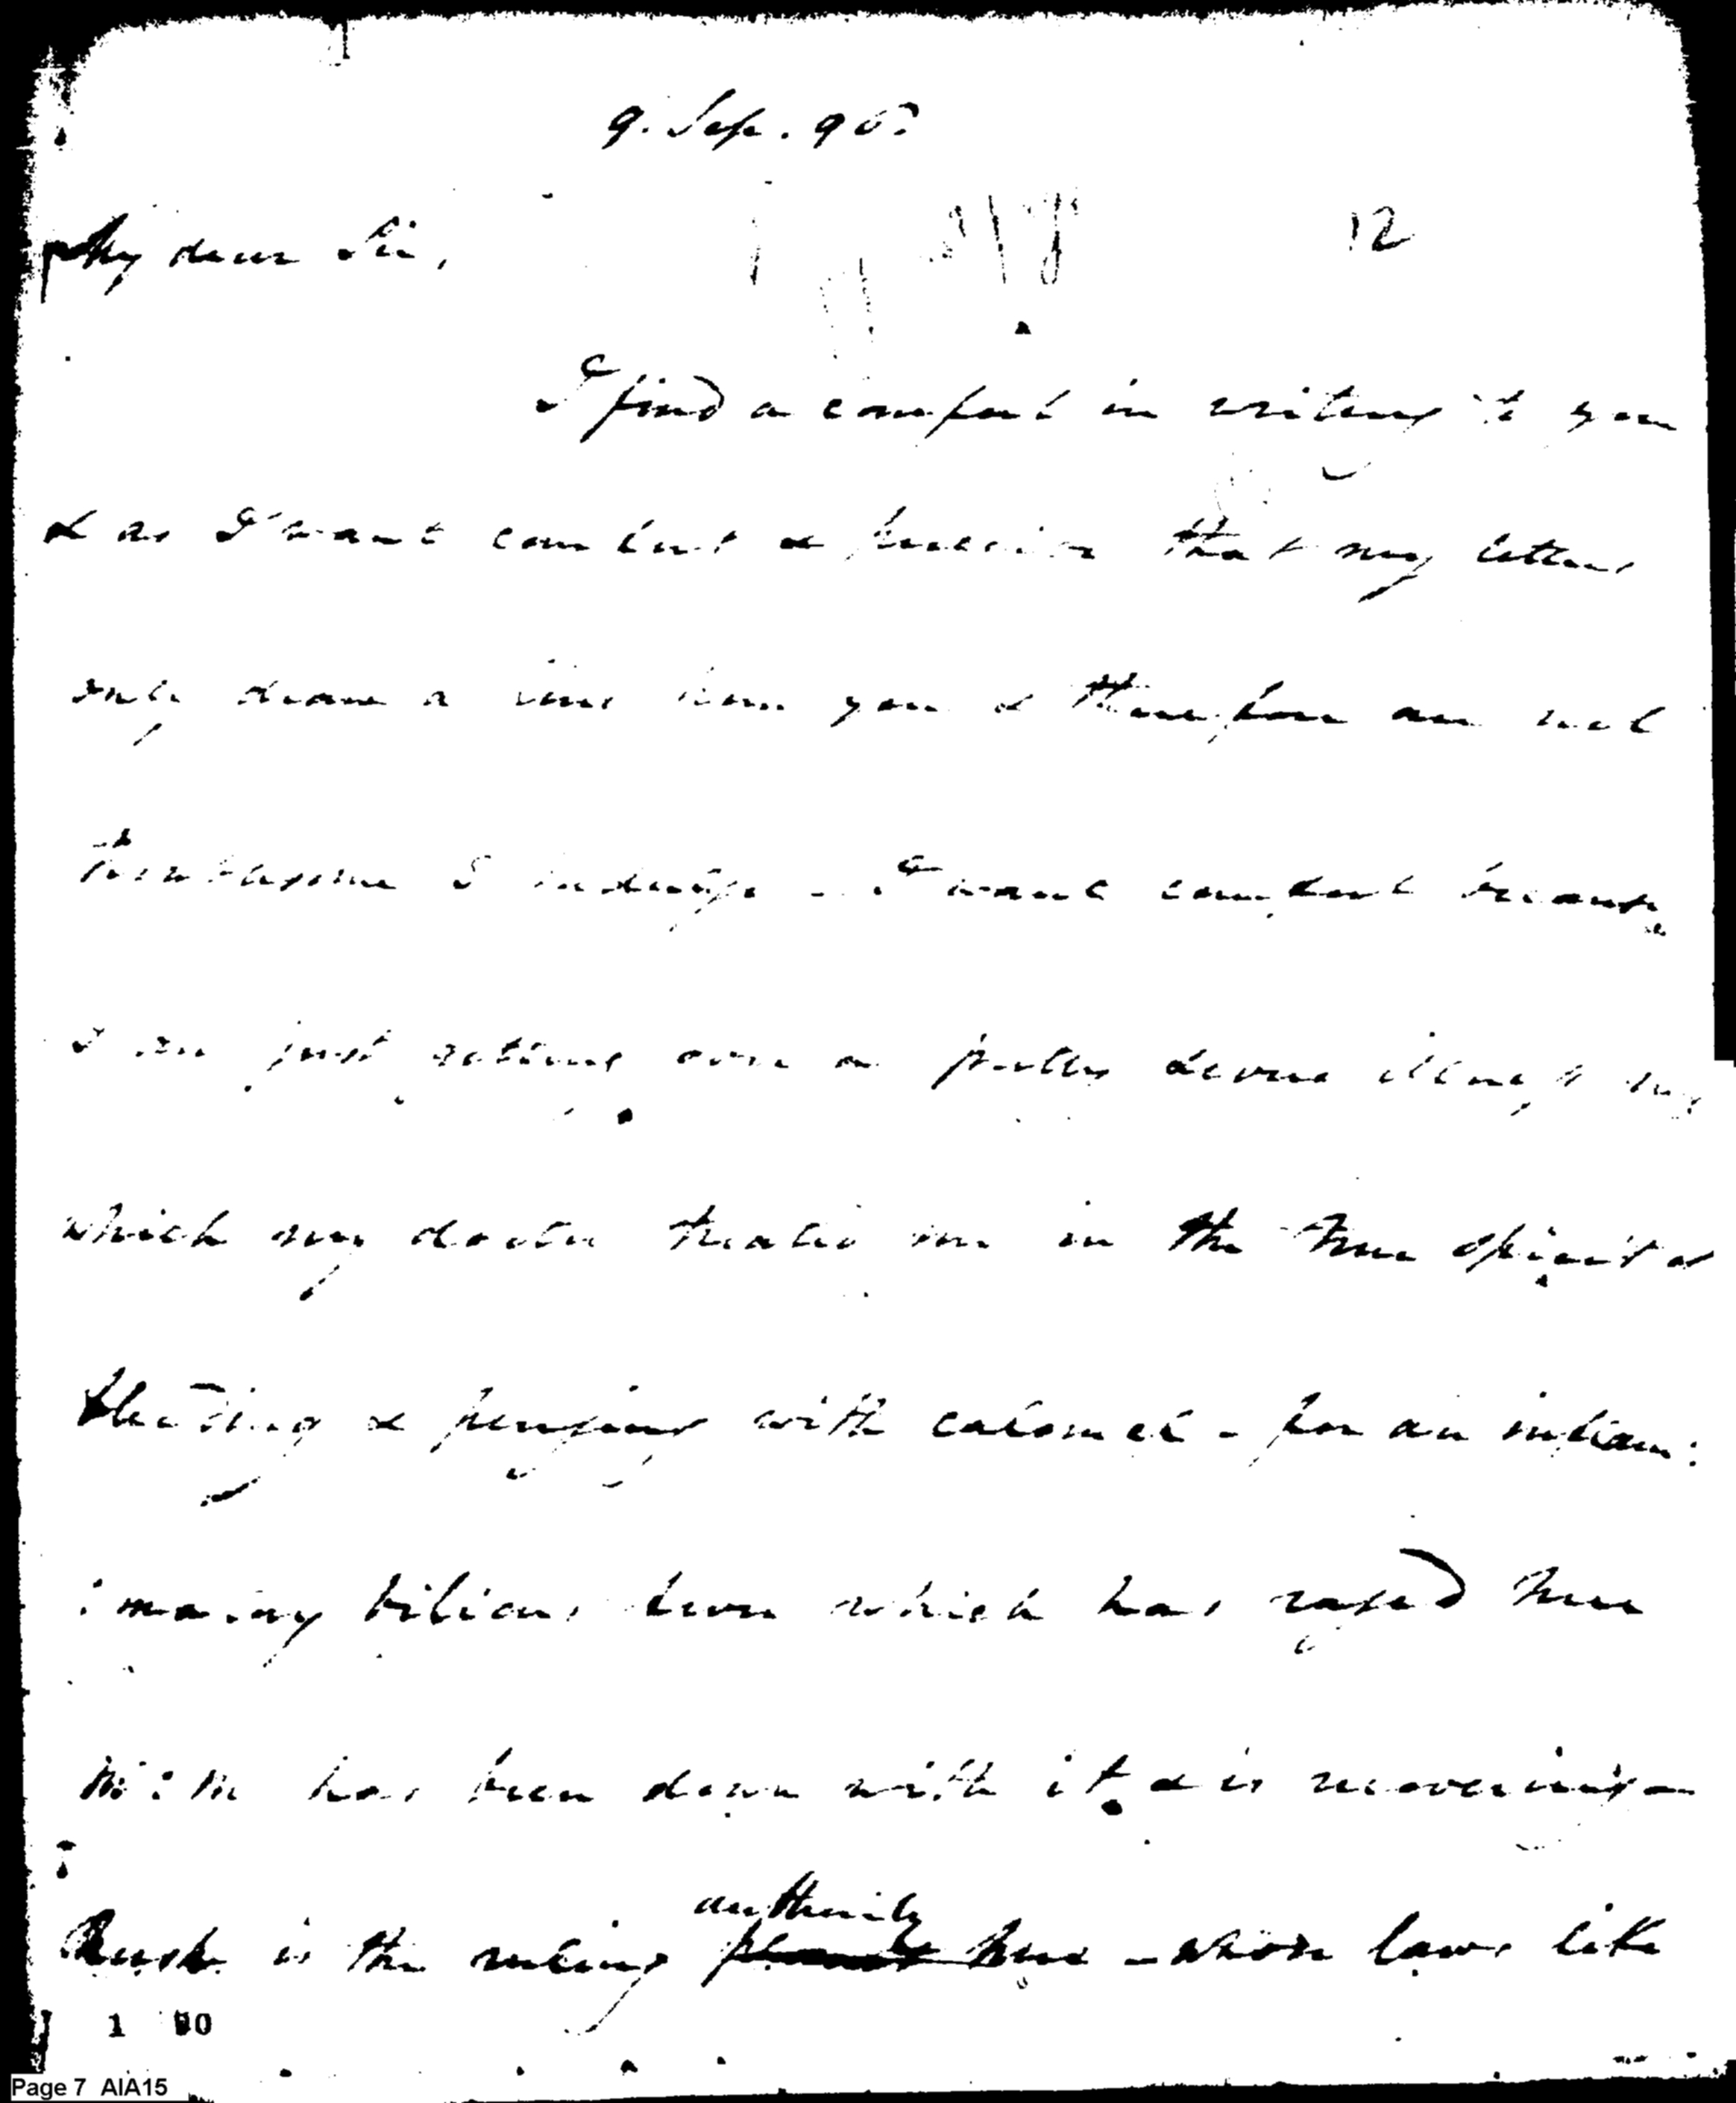 9. Sep. 95.
My dear Sir,
12
I find a comfort in writing to you
& as I want comfort & perceive that my letters
only draw a line from you & therefore are not
troublesome I indulge - I want comfort because
I am just getting over a pretty severe illness in
which my doctor treated me in the true spirit of
bleeding & purging with calomel - for an inflam:
:matory bilious fever which has raged here
Mrs: M has been down with it & is recovering -
authority
Rush is the ruling here - whose laws like
1 90
Page 7 AIA15